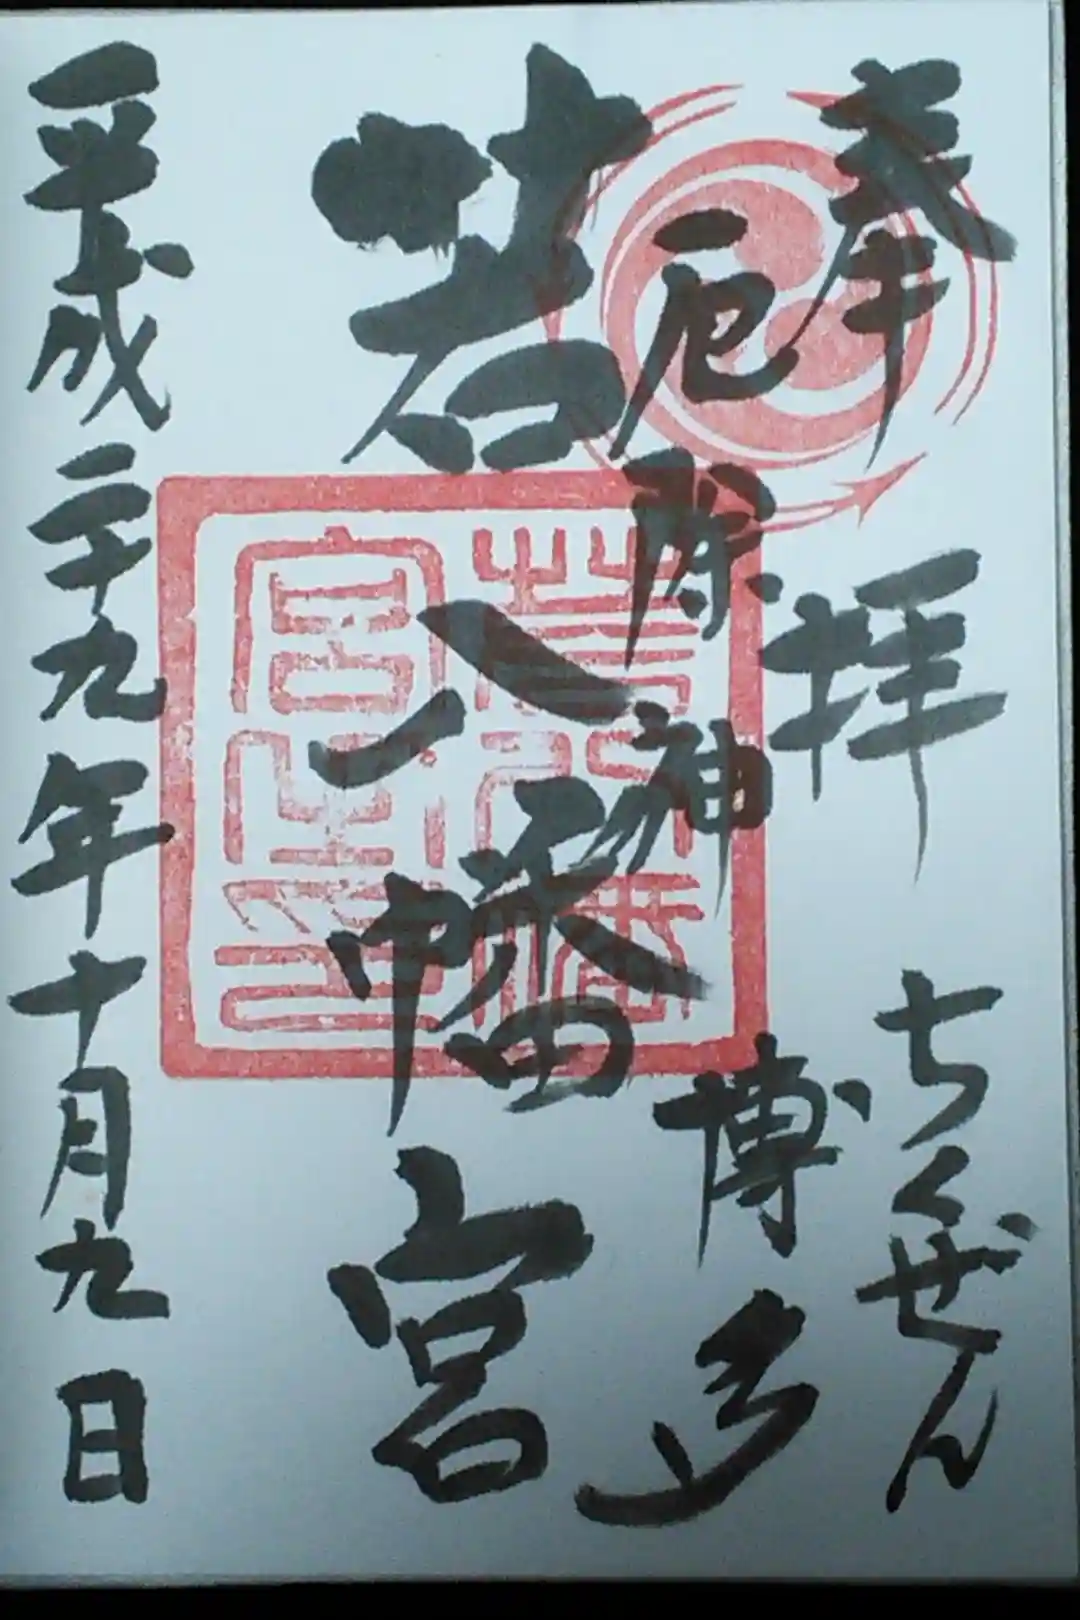 奉拝 ちくぜん
厄除神 博多
若八幡宮
平成二十九年十月九日
若八幡宮之印